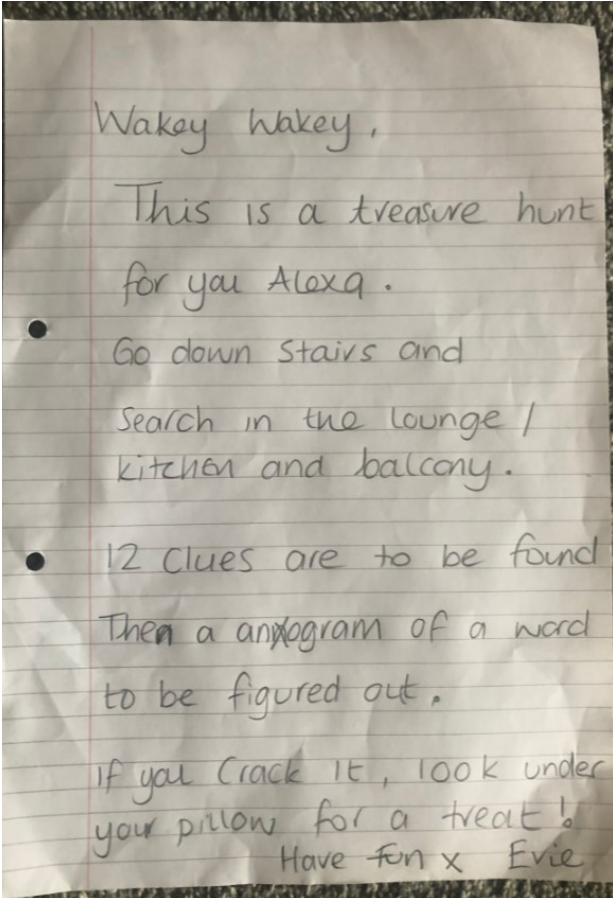 Wakey Wakey,
This is a treasure hunt
for you Alexa.
Go down Stairs and
Search in the lounge /
kitchen and balcony.
12 Clues are to be found
Then a anagram of a word
to be figured out.
if you Crack it, look under
your pillow for a treat!
Have fun x Evie